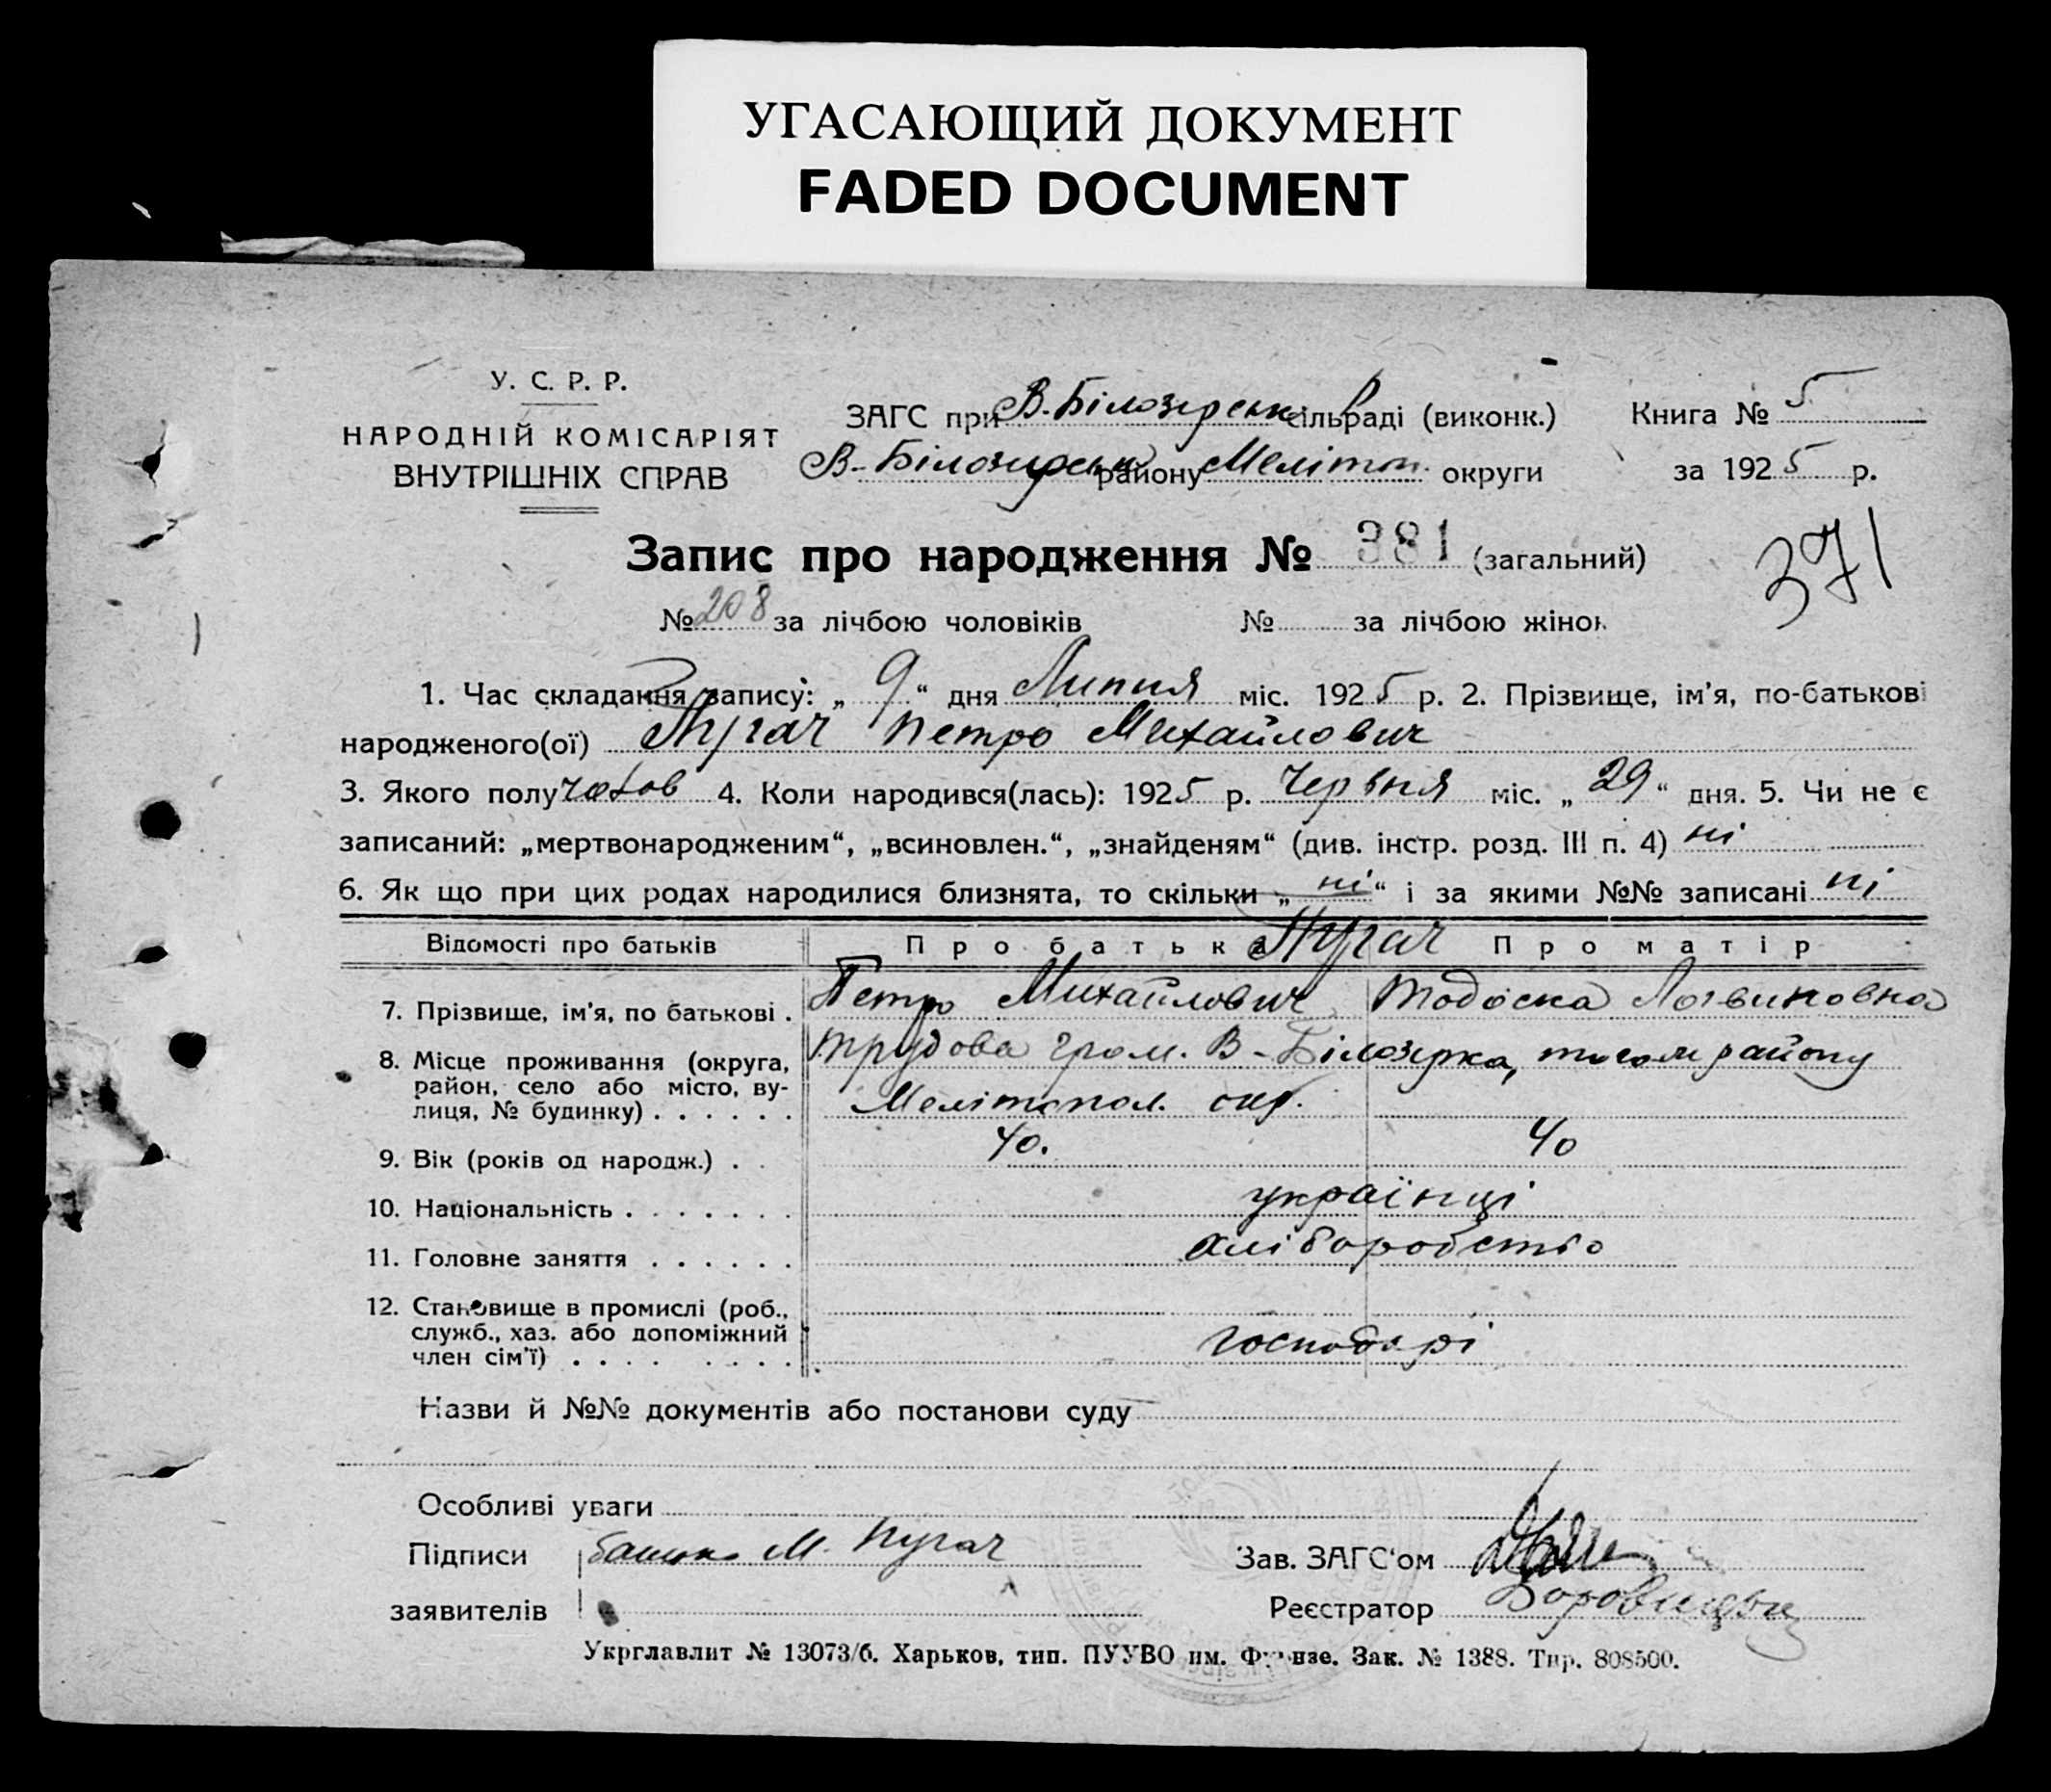 УГАСАЮЩИЙ ДОКУМЕНТ
FADED DOCUMENT
У. С. Р. Р.
НАРОДНІЙ КОМІСАРІЯТ
ВНУТРІШНІХ СПРАВ
ЗАГС при В. Білозерськ сільраді (виконк.)
В-Білозерськ району Мелітоп. округи
Книга № 5
за 1925 р.
Запис про народження № 381 (загальний)
371
№ 208 за лічбою чоловіків № за лічбою жінок
1. Час складання запису: „ 9 “ дня Липня міс. 1925 р. 2. Прізвище, ім’я, по-батькові
народженого(ої) Пугач Петро Михайлович
3. Якого полу чолов 4. Коли народився(лась): 1925 р. Червня міс. „ 29 “ дня. 5. Чи не є
записаний: „мертвонародженим“, „всиновлен.“, „знайденям“ (див. інстр. розд. III п. 4) ні
6. Як що при цих родах народилися близнята, то скільки „ ні “ і за якими №№ записані ні
Відомості про батьків Про батька Пугач Про матір
7. Прізвище, ім’я, по батькові . Петро Михайлович Тодоска Логвиновна
8. Місце проживання (округа, трудова гром. В-Білозерка, того ж району
район, село або місто, ву-
лиця, № будинку) . . . . . . Мелітопол. окр.
9. Вік (років од народж.) . . 40. 40
10. Національність . . . . . . . українці
11. Головне заняття . . . . . . хліборобство
12. Становище в промислі (роб.,
служб., хаз. або допоміжний
член сім’ї) . . . . . . . . господарі
Назви й №№ документів або постанови суду
Особливі уваги
Підписи батько М. Пугач
заявителів
Зав. ЗАГС‘ом
Реєстратор
Укрглавлит № 13073/б. Харьков, тип. ПУУВО им. Фрунзе. Зак. № 1388. Тир. 808500.